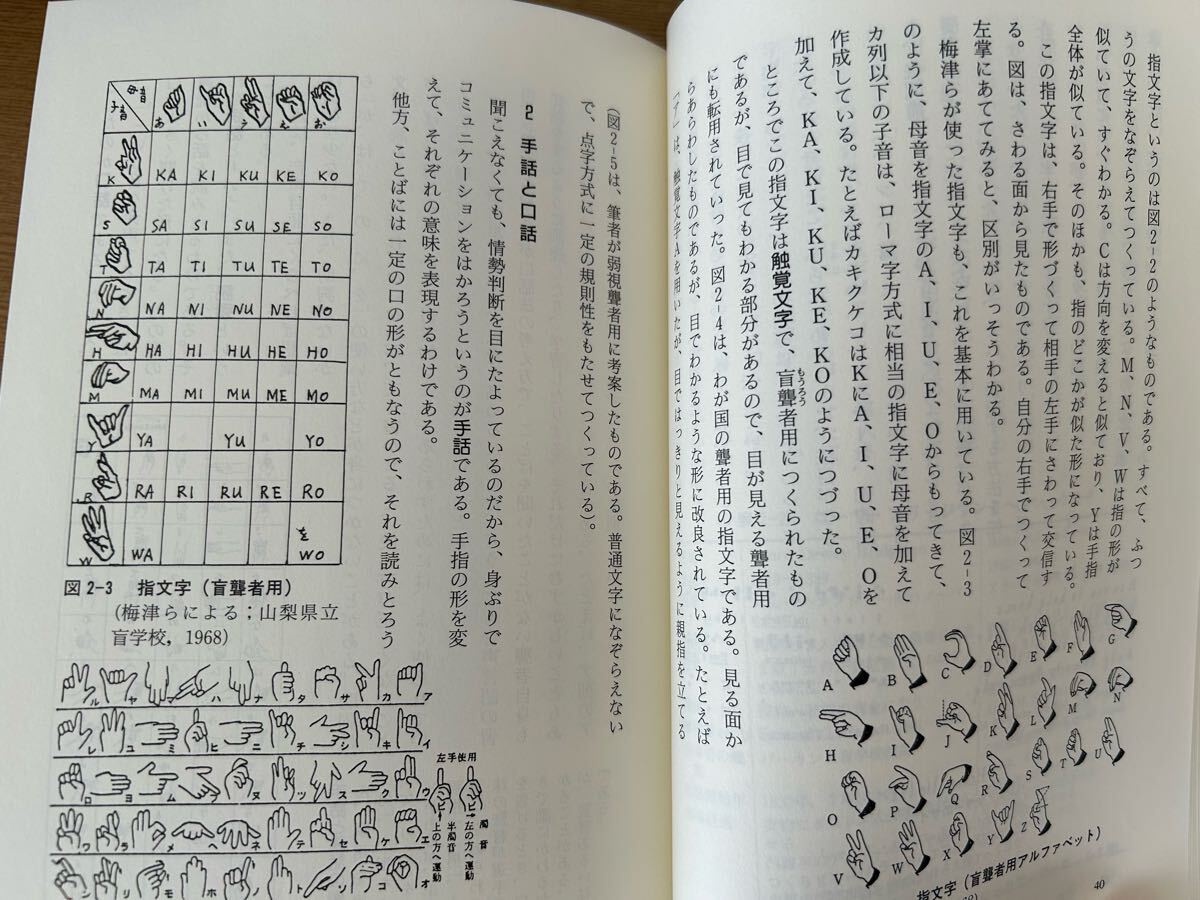 指文字というのは図2-2のようなものである。すべて、ふつ
うの文字をなぞらえてつくっている。M、N、V、Wは指の形が
似ていて、すぐわかる。Cは方向を変えると似ており、Yは手指
全体が似ている。そのほかも、指のどこかが似た形になっている。
この指文字は、右手で形づくって相手の左手にさわって交信す
る。図は、さわる面から見たものである。自分の右手でつくって
左掌にあててみると、区別がいっそうわかる。
梅津らが使った指文字も、これを基本に用いている。図2-3
のように、母音を指文字のA、I、U、E、Oからもってきて、
カ列以下の子音は、ローマ字方式に相当の指文字に母音を加えて
作成している。たとえばカキクケコはKにA、I、U、E、Oを
加えて、KA、KI、KU、KE、KOのようにつづった。
ところでこの指文字は触覚文字で、盲聾者用につくられたもの
もうろう
であるが、目で見てもわかる部分があるので、目が見える聾者用
にも転用されていった。図2-4は、わが国の聾者用の指文字である。見る面か
らあらわしたものであるが、目でわかるような形に改良されている。たとえば
「ア」は、触覚文字Aを用いたが、目ではっきりと見えるように親指を立てる
A B C D E F G
H I J K L M N
O P Q R S T U
V W X Y Z
指文字（盲聾者用アルファベット）
40
（図2-5は、筆者が弱視聾者用に考案したものである。普通文字になぞらえない
で、点字方式に一定の規則性をもたせてつくっている）。
2 手話と口話
聞こえなくても、情勢判断を目にたよっているのだから、身ぶりで
コミュニケーションをはかろうというのが手話である。手指の形を変
えて、それぞれの意味を表現するわけである。
他方、ことばには一定の口の形がともなうので、それを読みとろう
母音
子音
あ い う え お
K KA KI KU KE KO
S SA SI SU SE SO
T TA TI TU TE TO
N NA NI NU NE NO
H HA HI HU HE HO
M MA MI MU ME MO
Y YA YU YO
R RA RI RU RE RO
W WA を WO
図2-3 指文字（盲聾者用）
（梅津らによる；山梨県立
盲学校，1968）
ル ヤ マ ハ ナ タ サ カ ア
レ ユ ミ ヒ ニ チ シ キ イ
ロ ヨ ム フ ヌ ツ ス ク ウ
ワ ラ メ ヘ ネ テ セ ケ エ
リ モ ホ ノ ト ソ コ オ
左手使用
濁音
左の方へ運動
半濁音
上の方へ運動